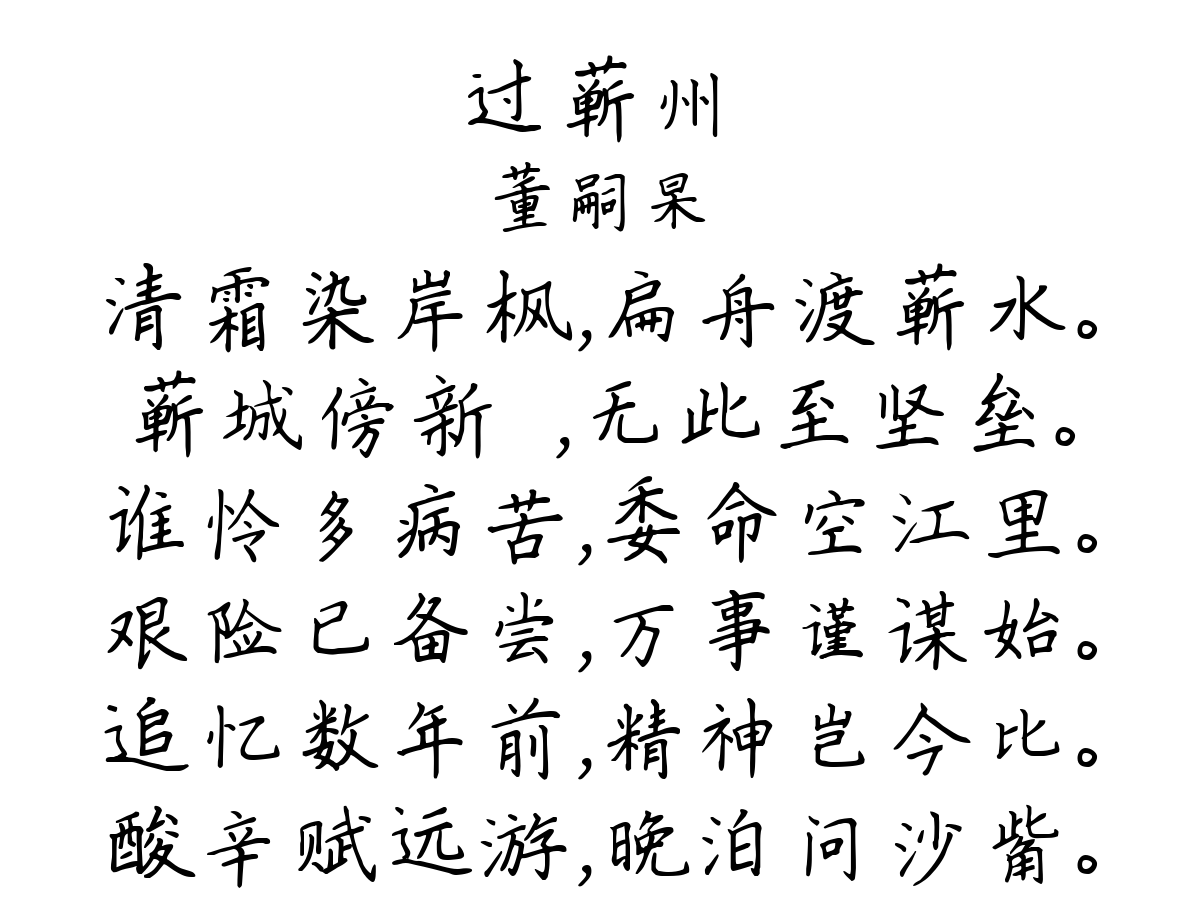 过蕲州
董嗣杲
清霜染岸枫,扁舟渡蕲水。
蕲城傍新 ,无此至坚垒。
谁怜多病苦,委命空江里。
艰险已备尝,万事谨谋始。
追忆数年前,精神岂今比。
酸辛赋远游,晚泊问沙觜。